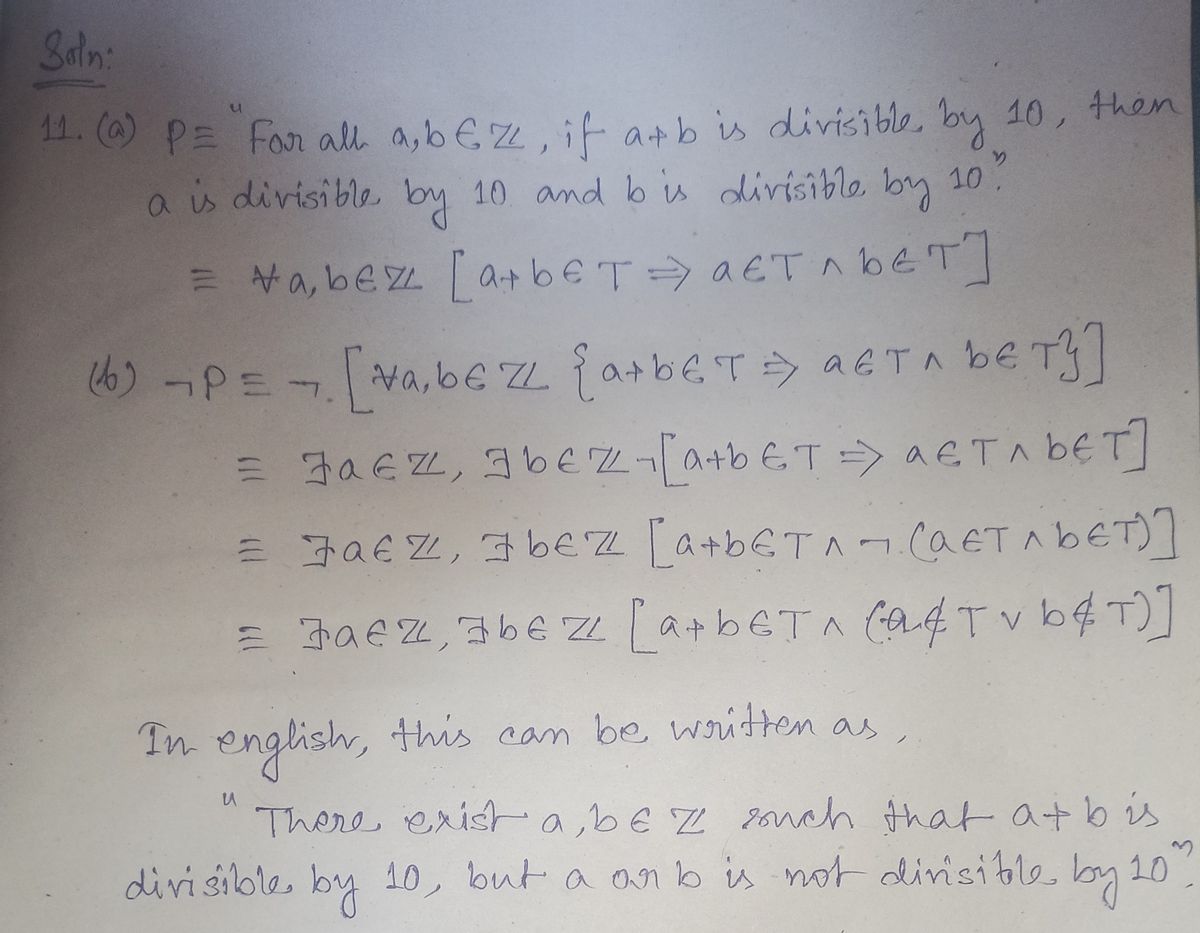 Soln:
11. (a) P ≡ "For all a, b ∈ ℤ, if a+b is divisible by 10, then
a is divisible by 10 and b is divisible by 10".
≡ ∀a, b ∈ ℤ [a+b ∈ T ⇒ a ∈ T ∧ b ∈ T]
(b) ¬P ≡ ¬.[∀a, b ∈ ℤ {a+b ∈ T ⇒ a ∈ T ∧ b ∈ T}]
≡ ∃a ∈ ℤ, ∃b ∈ ℤ ¬[a+b ∈ T ⇒ a ∈ T ∧ b ∈ T]
≡ ∃a ∈ ℤ, ∃b ∈ ℤ [a+b ∈ T ∧ ¬.(a ∈ T ∧ b ∈ T)]
≡ ∃a ∈ ℤ, ∃b ∈ ℤ [a+b ∈ T ∧ (a ∉ T ∨ b ∉ T)]
In english, this can be written as,
"There exist a, b ∈ ℤ such that a+b is
divisible by 10, but a or b is not divisible by 10".